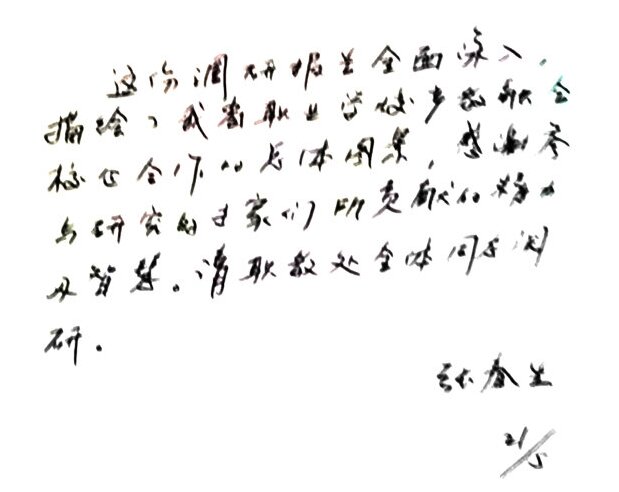 这份调研报告全面深入，
描绘了我省职业学校产教融合
校企合作的总体图景，感谢参
与研究的专家们所贡献的精力
及智慧。请职教处全体同志阅
研。
张春生
21/5